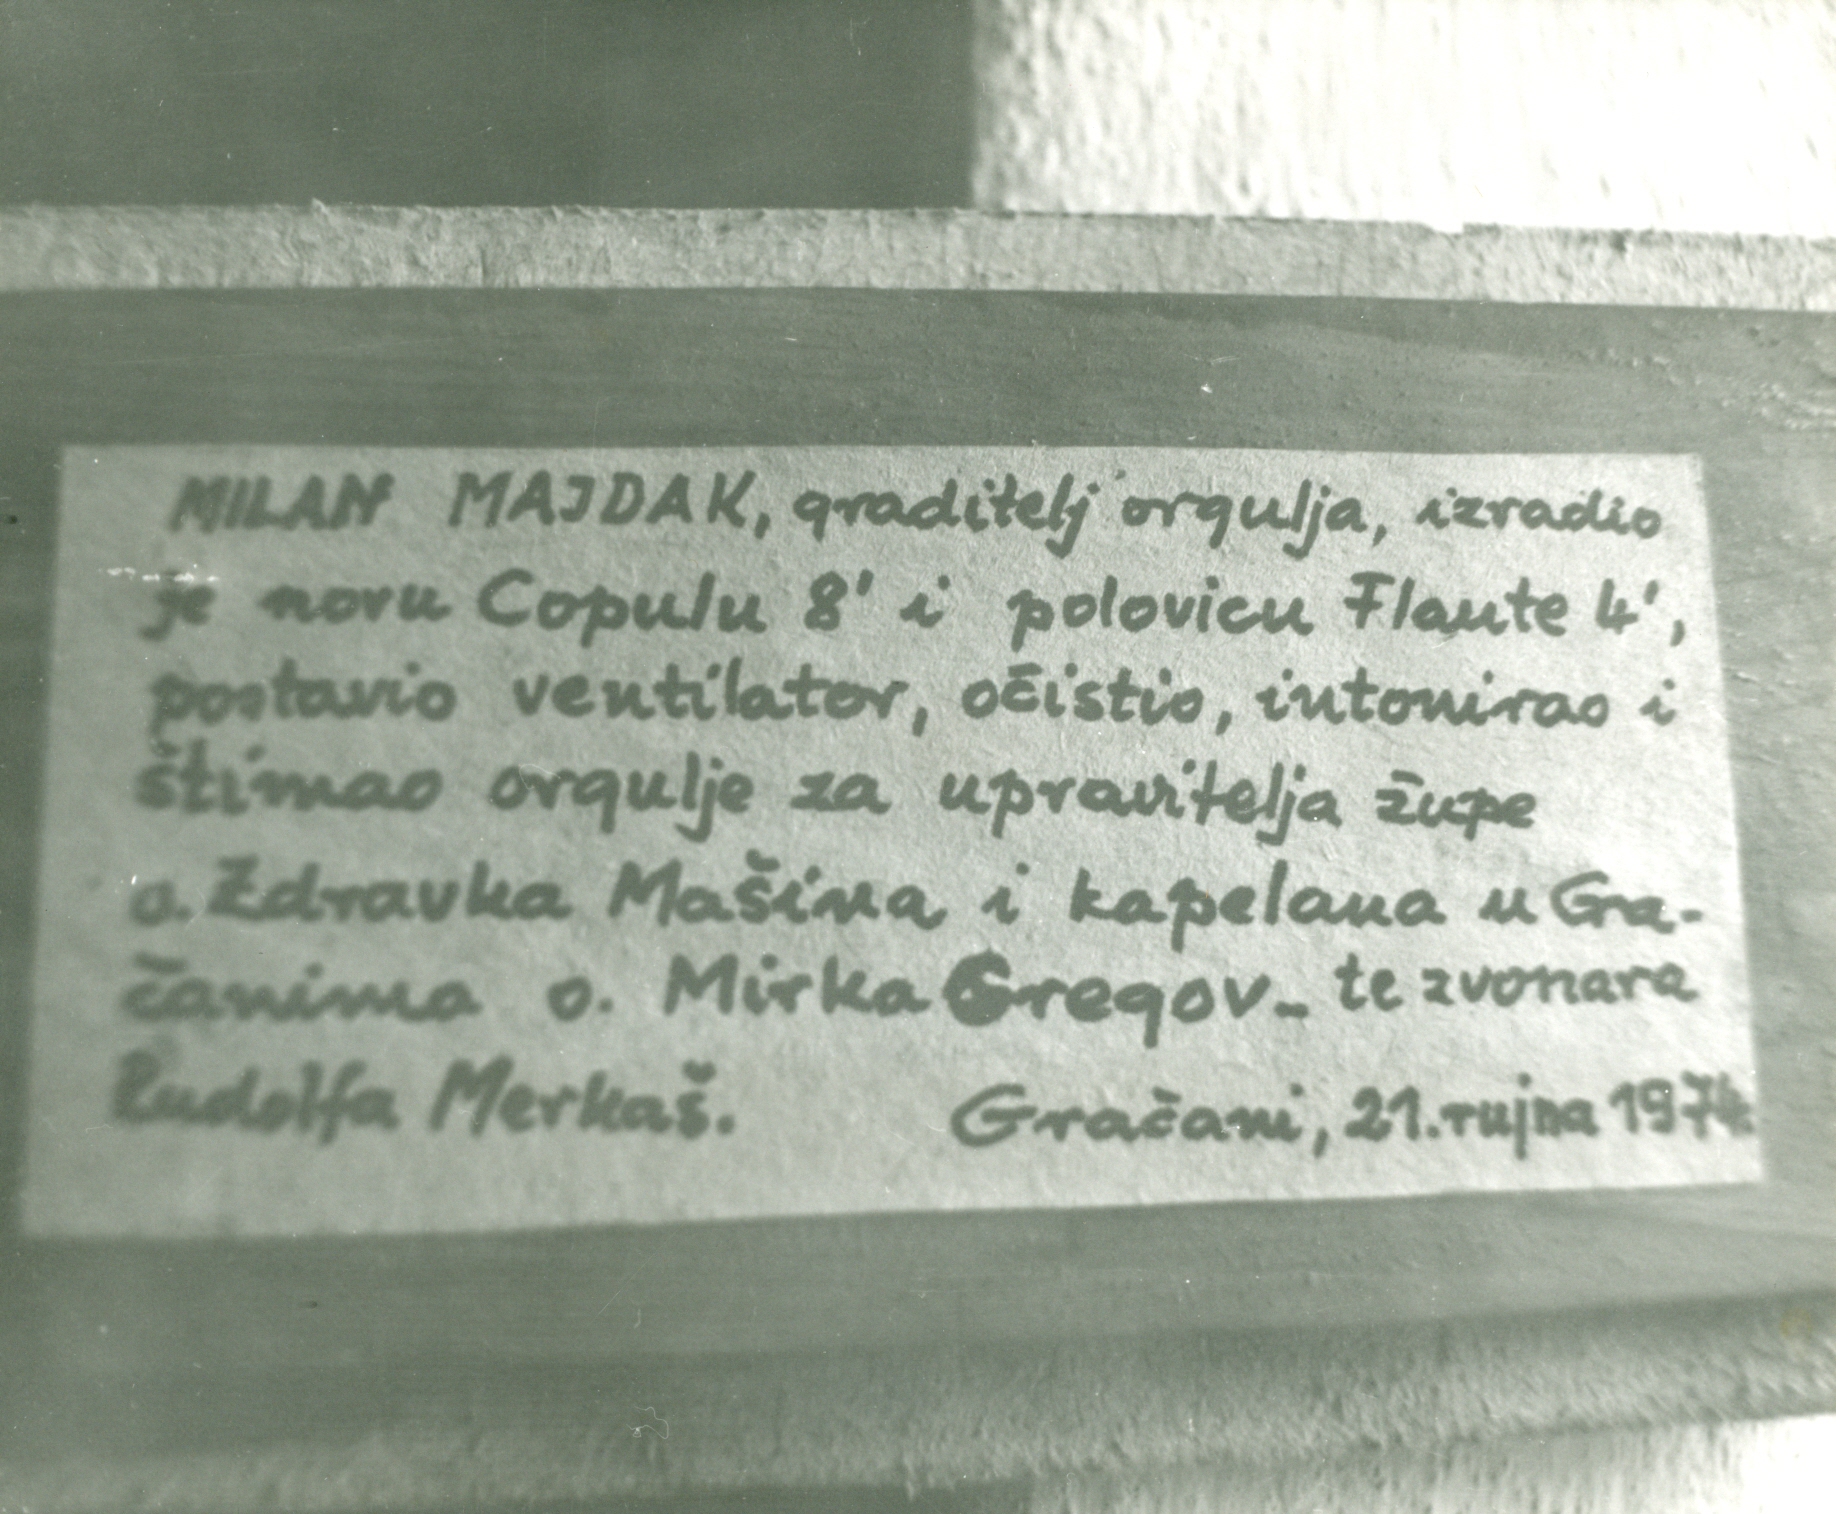 MILAN MAJDAK, graditelj orgulja, izradio
je novu Copulu 8' i polovicu Flaute 4',
postavio ventilator, očistio, intonirao i
štimao orgulje za upravitelja župe
o. Zdravka Mašina i kapelana u Gra-
čanima o. Mirka Gregov - te zvonara
Rudolfa Merkaš. Gračani, 21. rujna 1974